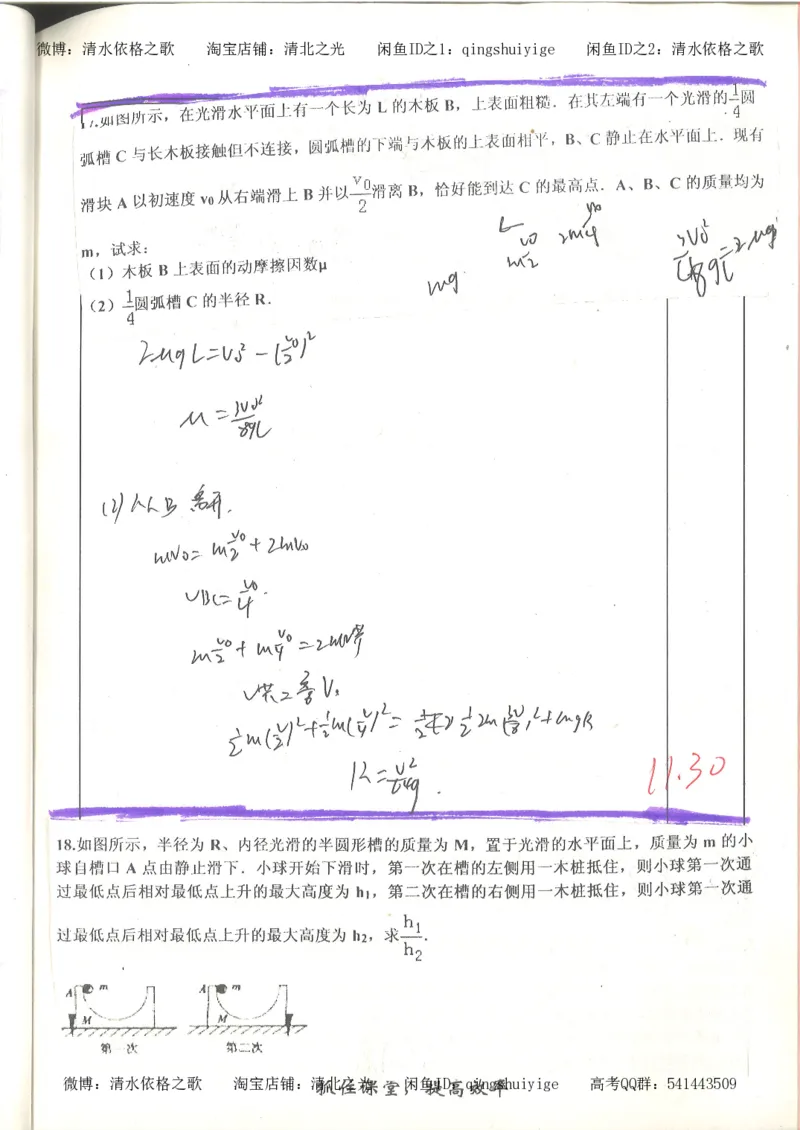 微博：清水依格之歌 淘宝店铺：清北之光 闲鱼ID之1：qingshuiyige 闲鱼ID之2：清水依格之歌
17.如图所示，在光滑水平面上有一个长为 L 的木板 B，上表面粗糙．在其左端有一个光滑的1/4圆
弧槽 C 与长木板接触但不连接，圆弧槽的下端与木板的上表面相平，B、C 静止在水平面上．现有
滑块 A 以初速度 v₀ 从右端滑上 B 并以v₀/2滑离 B，恰好能到达 C 的最高点．A、B、C 的质量均为
m，试求：
（1）木板 B 上表面的动摩擦因数μ
（2）1/4圆弧槽 C 的半径 R．
mg
2μgL=v₀²-(v₀/2)²
μ=3v₀²/8gL
(2)从B 离开.
mv₀=m v₀/2+2mv₀
vBC=v₀/4.
m v₀/2+m v₀/4=2mv共
R=v²/64g.
11.30
18.如图所示，半径为 R、内径光滑的半圆形槽的质量为 M，置于光滑的水平面上，质量为 m 的小
球自槽口 A 点由静止滑下．小球开始下滑时，第一次在槽的左侧用一木桩抵住，则小球第一次通
过最低点后相对最低点上升的最大高度为 h₁，第二次在槽的右侧用一木桩抵住，则小球第一次通
过最低点后相对最低点上升的最大高度为 h₂，求h₁/h₂．
A m A m
M M
第一次 第二次
微博：清水依格之歌 淘宝店铺：清北之光 闲鱼ID：qingshuiyige 高考QQ群：541443509
抓住课堂，提高效率